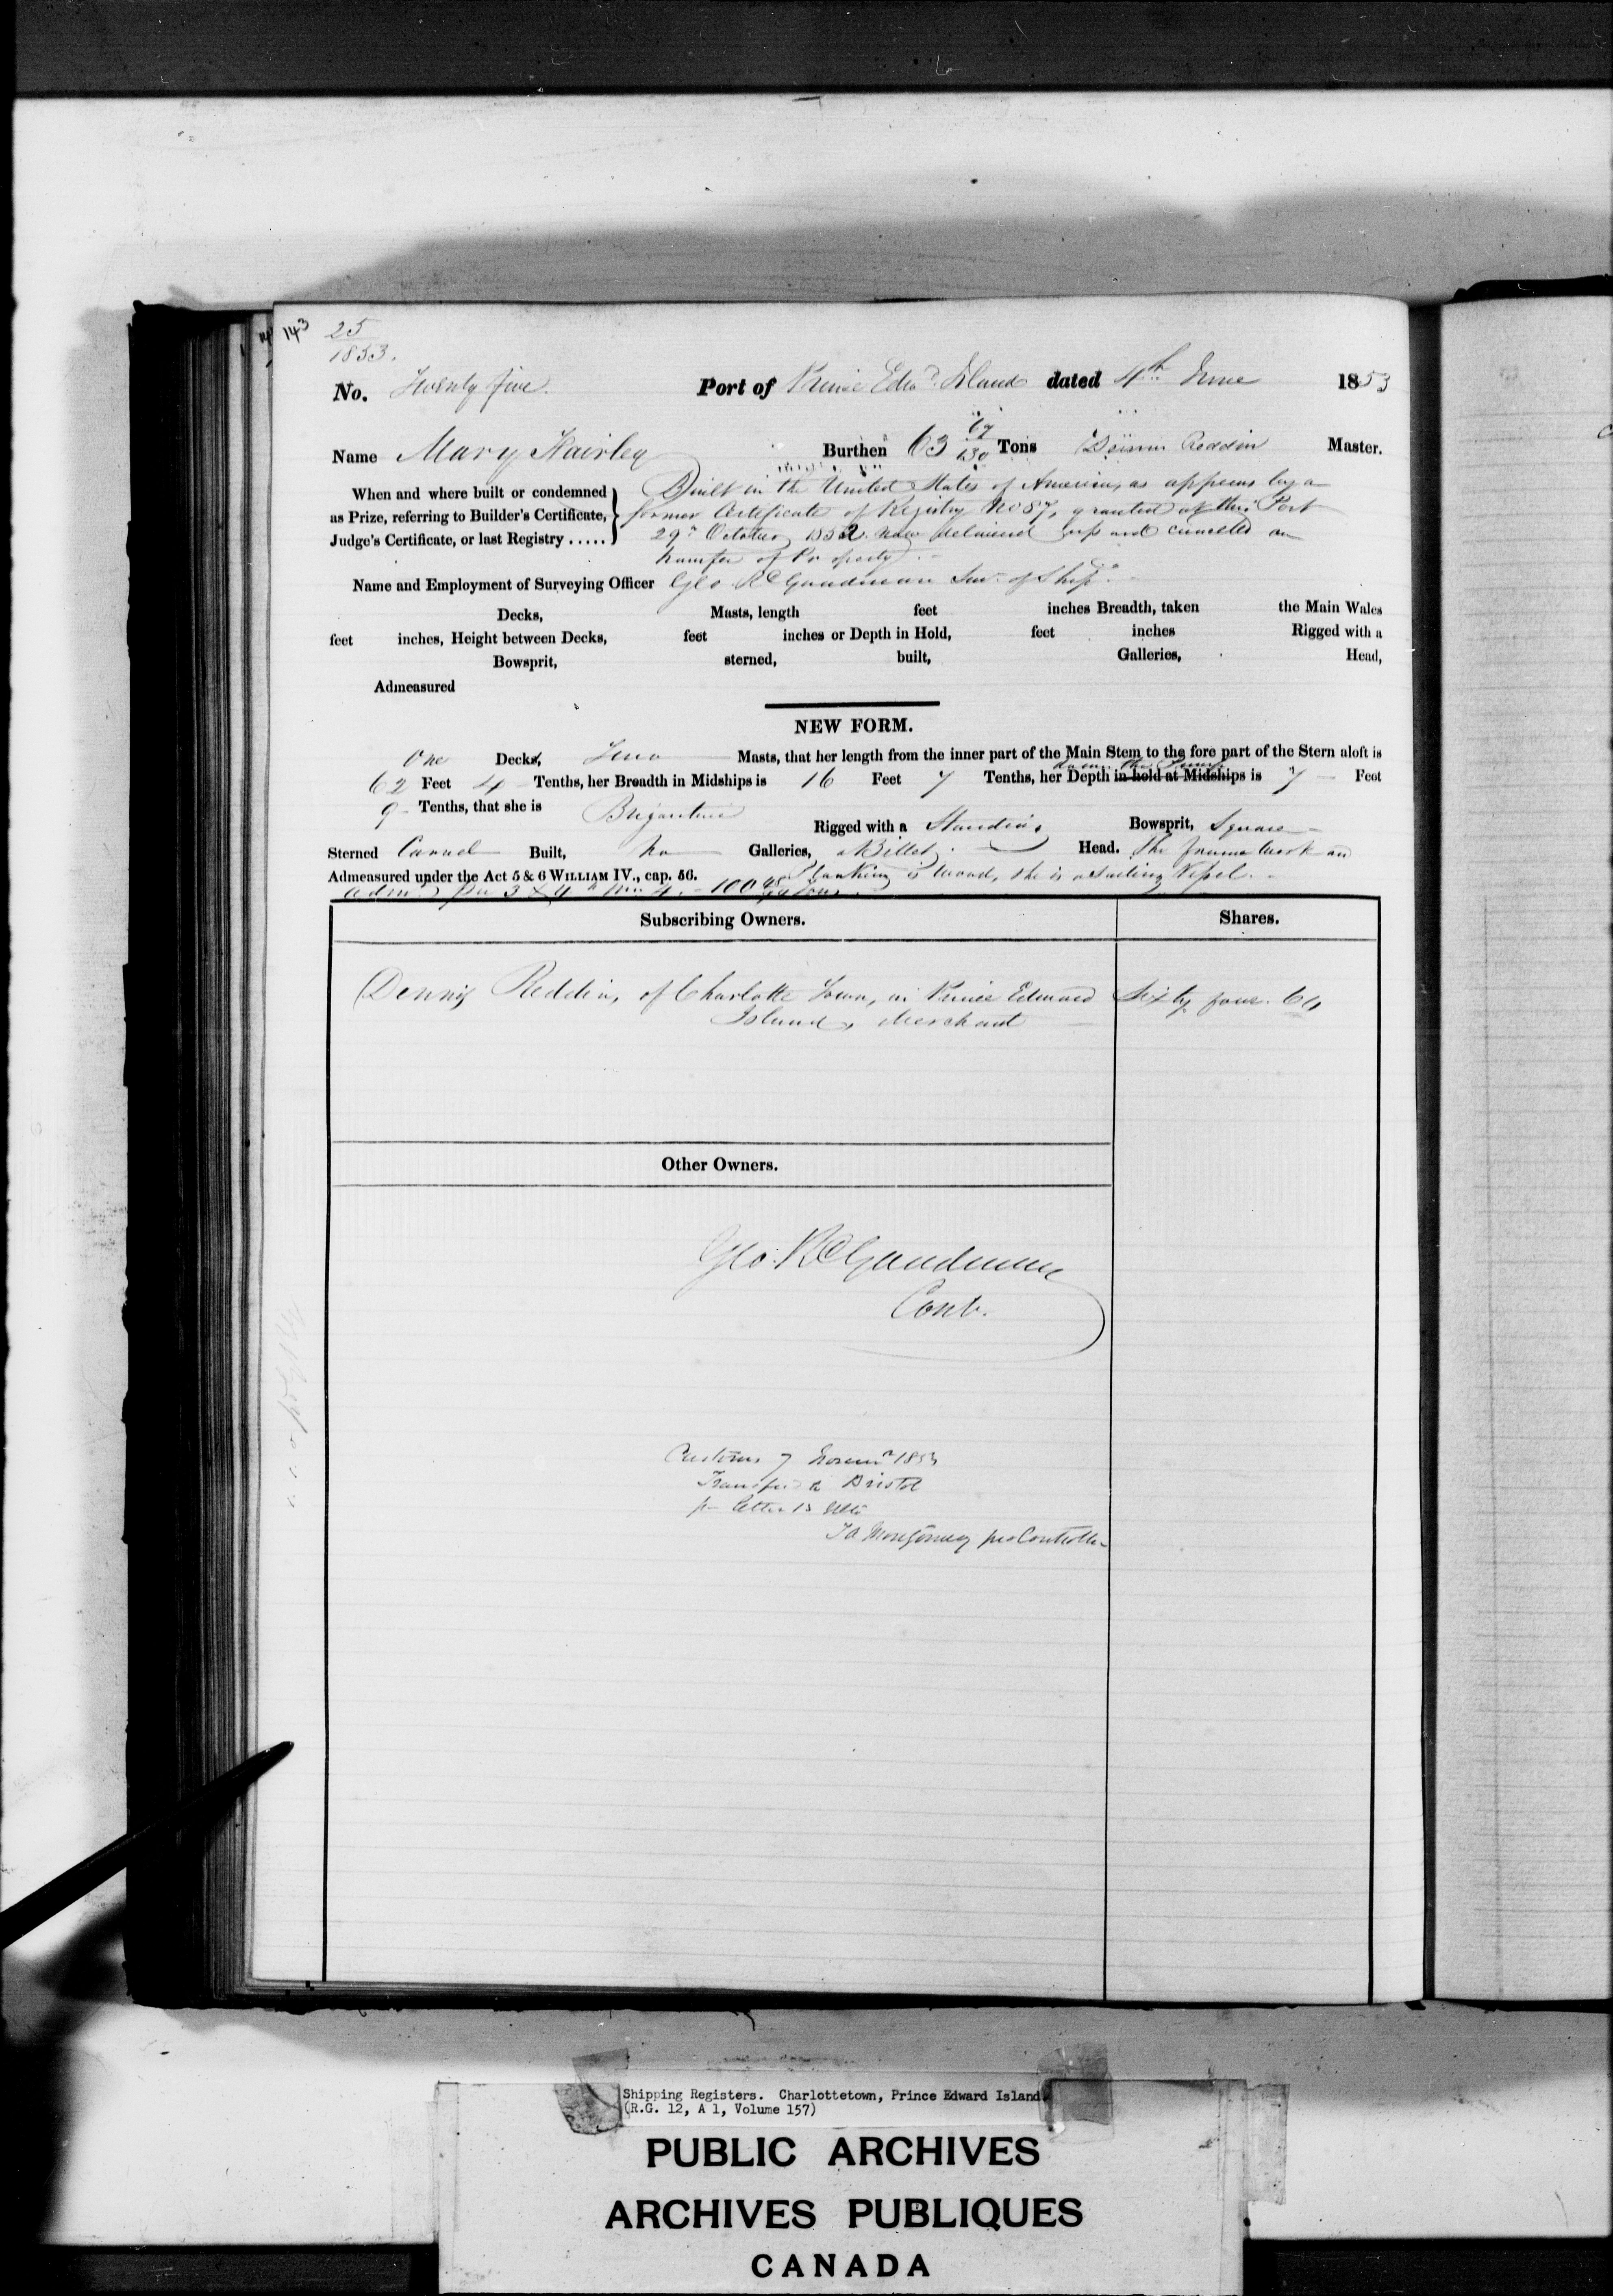 143 25
1853.
No. Twenty five. Port of Prince Edwd. Island dated 4th June 1853
Name Mary Burthen 63 67/130 Tons Dennis Reddin Master.
When and where built or condemned as Prize, referring to Builder's Certificate, Judge's Certificate, or last Registry ..... } Built in the United States of America, as appears by a
former Certificate of Registry No 87, granted at this Port
29th October 1852 now delivered up and cancelled on
transfer of Property.
Name and Employment of Surveying Officer Geo R Goodman Sur. of Ship
Decks, Masts, length feet inches Breadth, taken the Main Wales
feet inches, Height between Decks, feet inches or Depth in Hold, feet inches Rigged with a
Bowsprit, sterned, built, Galleries, Head,
Admeasured
NEW FORM.
One Decks, Two Masts, that her length from the inner part of the Main Stem to the fore part of the Stern aloft is
62 Feet 4 Tenths, her Breadth in Midships is 16 Feet 7 Tenths, her Depth in hold at Midships is 7 Feet
9 Tenths, that she is Brigantine
Rigged with a Standing Bowsprit, Square
Sterned Carvel Built, no Galleries, a Billet Head. The frame work and
Admeasured under the Act 5 & 6 WILLIAM IV., cap. 56. Planking is wood, she is a Sailing Vessel.
Subscribing Owners. Shares.
Dennis Reddin, of Charlotte Town, in Prince Edward Sixty four. 64
Island, Merchant
Other Owners.
Geo. R Goodman
Cont.
Customs 7 Novemr 1853
Transfd to Bristol
pr letter 13 Ulto
Montgomery pro Controller
Shipping Registers. Charlottetown, Prince Edward Island
(R.G. 12, A 1, Volume 157)
PUBLIC ARCHIVES
ARCHIVES PUBLIQUES
CANADA